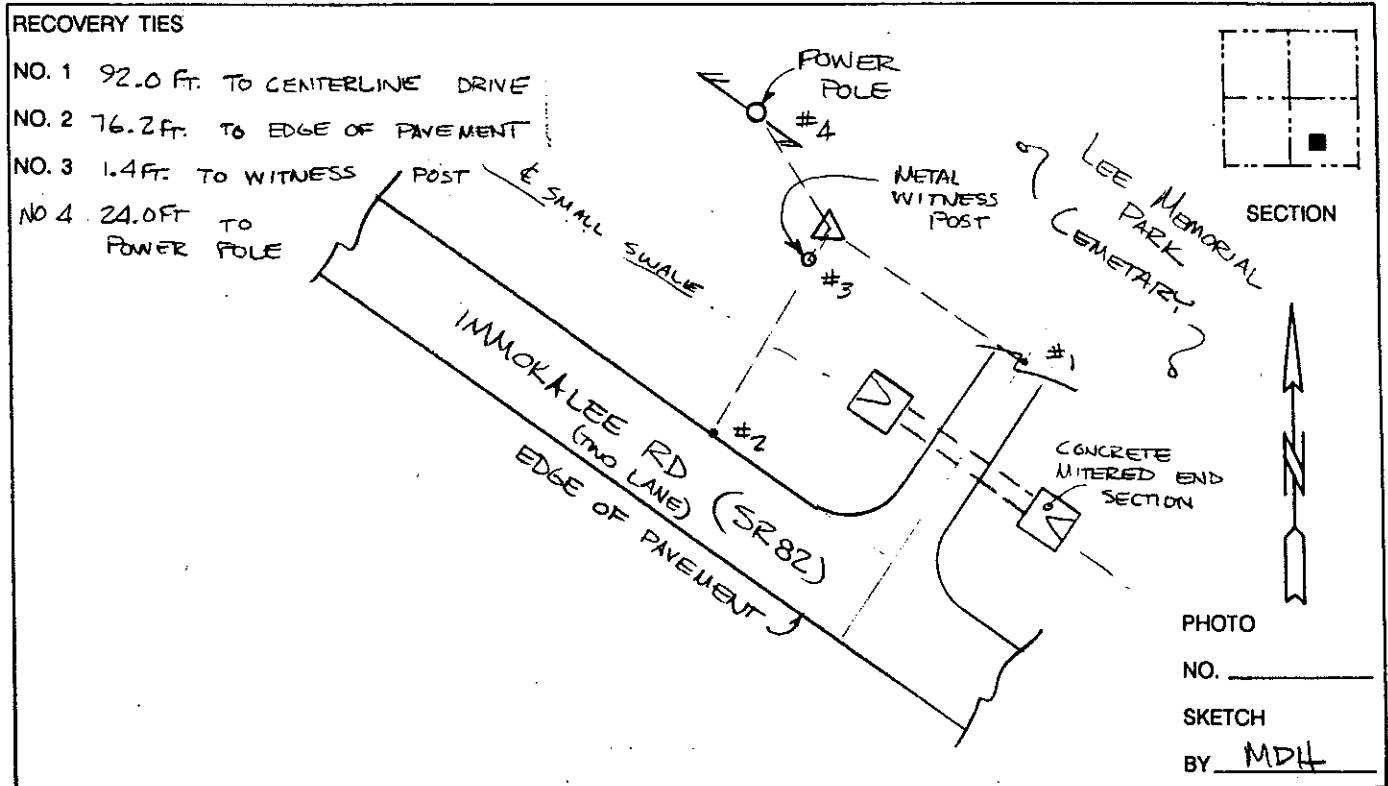 RECOVERY TIES
NO. 1 92.0 FT. TO CENTERLINE DRIVE
NO. 2 76.2 FT. TO EDGE OF PAVEMENT
NO. 3 1.4 FT. TO WITNESS POST
NO 4 24.0 FT TO
POWER POLE
POWER
POLE
#4
METAL
WITNESS
POST
#3
LEE MEMORIAL
PARK
CEMETARY
SECTION
℄ SMALL SWALE
#1
#2
IMMOKALEE RD
(TWO LANE)
(SR 82)
EDGE OF PAVEMENT
CONCRETE
MITERED END
SECTION
N
PHOTO
NO.
SKETCH
BY MDH